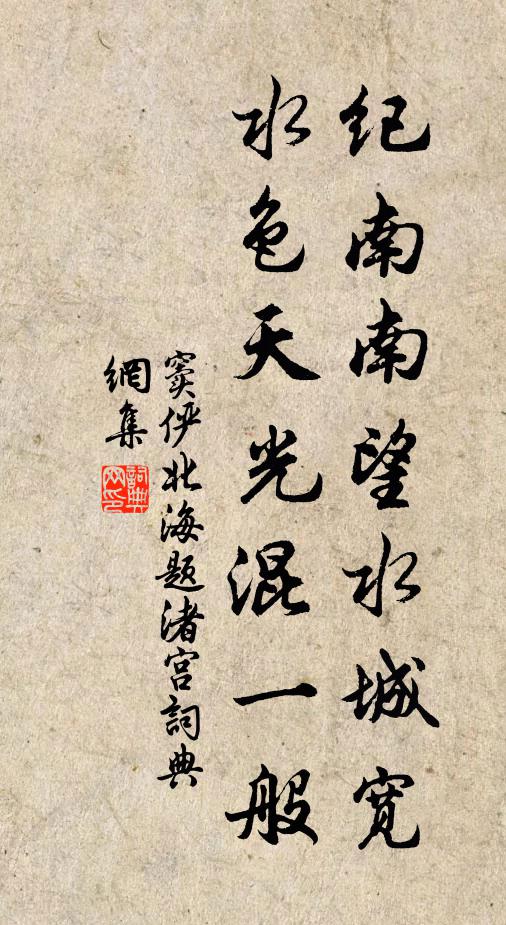 纪南南望水城宽
水色天光混一般
窦俨北海题渚宫詞典
網集
詞典网印